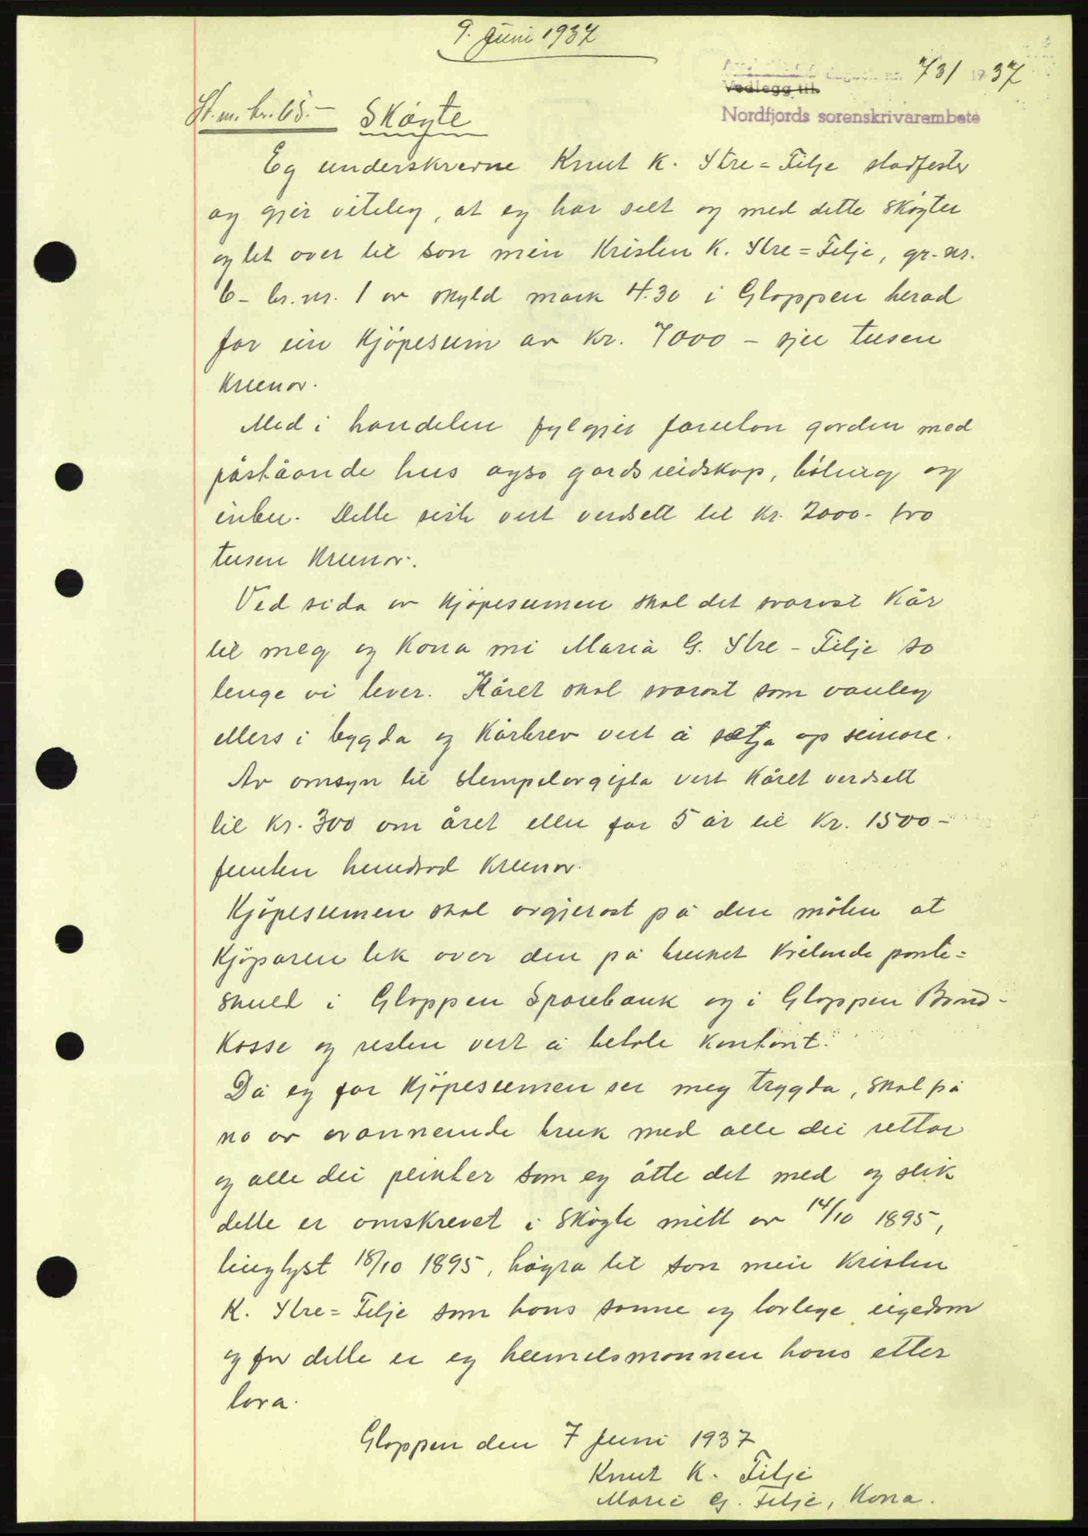 9. Juni 1937
dagbok nr. 731 1937
Vedlegg til
Nordfjords sorenskrivarembete
St.m. kr. 65.- Skøyte
Eg underskrevne Knut K. Ytre=Tilje stadfester
og gjer viteleg, at eg har selt og med dette skøyter
og let over til son min Kristen K. Ytre=Tilje, gr.nr.
6 - br.nr. 1 av skyld mark 4.30 i Gloppen herad
for ein kjøpesum av kr. 7000 - sju tusen
krunor.
Med i handelen fylgjer foruten garden med
påståande hus ogso gardsreidskap, bøling og
inbu. Dette siste vert verdsett til kr. 2000.- tvo
tusen krunor.
Ved sida av kjøpesumen skal det svarast kår
til meg og kona mi Maria G. Ytre-Tilje so
lenge vi lever. Kåret skal svarast som vanleg
ellers i bygda og kårbrev vert å setja op seinare.
Av omsyn til stempelavgifta vert kåret verdsett
til kr. 300 om året eller for 5 år til kr. 1500 -
femten hundrad krunor.
Kjøpesumen skal avgjerast på den måten at
kjøparen tek over den på bruket kvilande pante=
skuld i Gloppen Sparebank og i Gloppen Bond-
kasse og resten vert å betale kontant.
Då eg for kjøpesumen ser meg trygda, skal på
no av ovannemnde bruk med alle dei rettar
og alle dei plikter som eg åtte det med og slik
dette er omskrevet i skøyte mitt av 14/10 1895,
tinglyst 18/10 1895, høyra til son min Kristen
K. Ytre=Tilje som hans sanne og lovlege eigedom
og for dette er eg heimelsmannen hans etter
lova.
Gloppen den 7 Juni 1937
Knut K. Tilje
Marie G. Tilje, Kona.